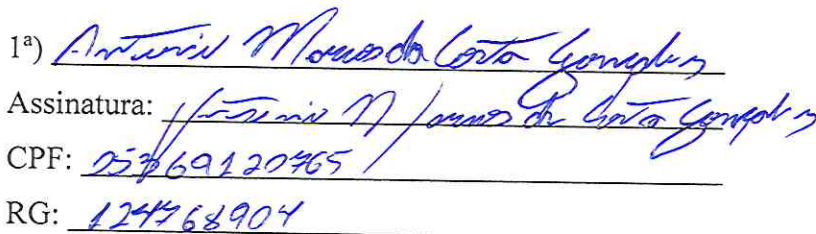 1ª) Antonio Marcos da Costa Gonçalves
Assinatura: Antonio Marcos da Costa Gonçalves
CPF:
RG: 124768904